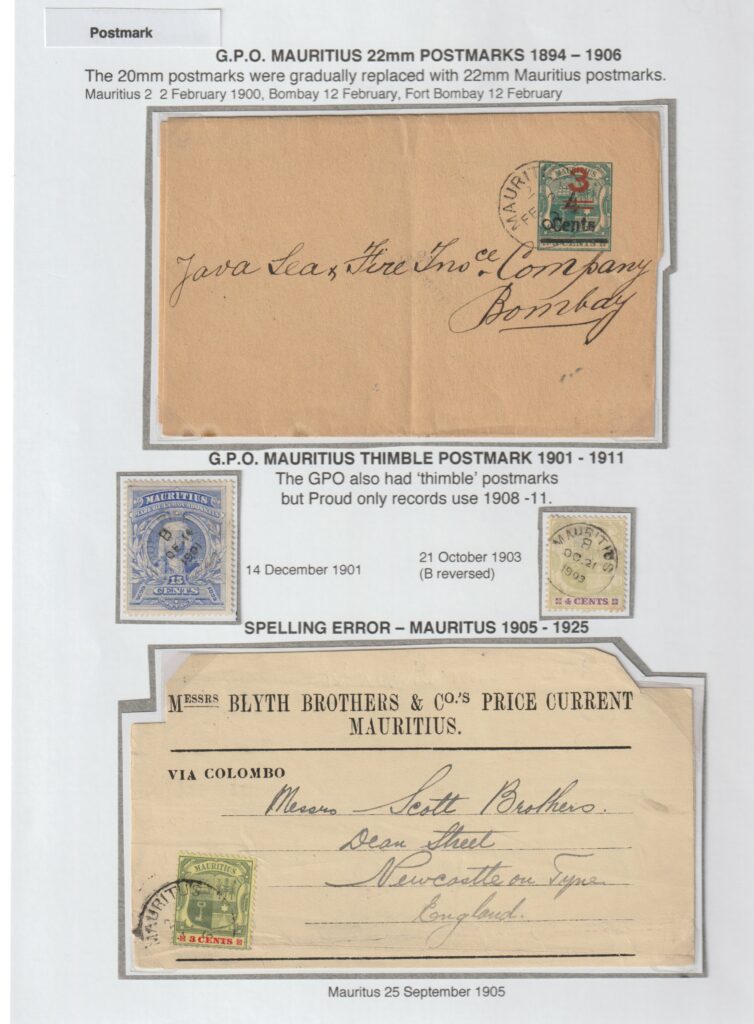 Postmark
G.P.O. MAURITIUS 22mm POSTMARKS 1894 – 1906
The 20mm postmarks were gradually replaced with 22mm Mauritius postmarks.
Mauritius 2 2 February 1900, Bombay 12 February, Fort Bombay 12 February
MAURITIUS
3
4
Cents
Java Sea & Fire Insce. Company
Bombay
G.P.O. MAURITIUS THIMBLE POSTMARK 1901 - 1911
The GPO also had 'thimble' postmarks
but Proud only records use 1908 -11.
MAURITIUS
B
DE 14
1901
15
CENTS
14 December 1901
21 October 1903
(B reversed)
MAURITIUS
B
OC 21
1903
4 CENTS
SPELLING ERROR – MAURITUS 1905 - 1925
MESSRS BLYTH BROTHERS & CO.'S PRICE CURRENT
MAURITIUS.
VIA COLOMBO
Messrs Scott Brothers.
Dean Street
Newcastle on Tyne
England.
MAURITIUS
MAURITUS
3 CENTS
Mauritus 25 September 1905